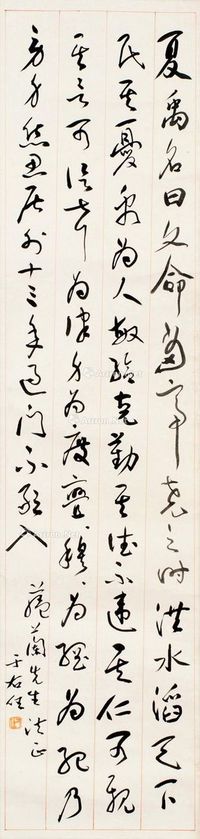 夏禹名曰文命當帝堯之時洪水滔天下
民其憂禹為人敏給克勤其德不違其仁可親
其言可信聲為律身為度亹、穆、為綱為紀乃
勞身焦思居外十三年過門不敢入
蘭先生法正
于右任